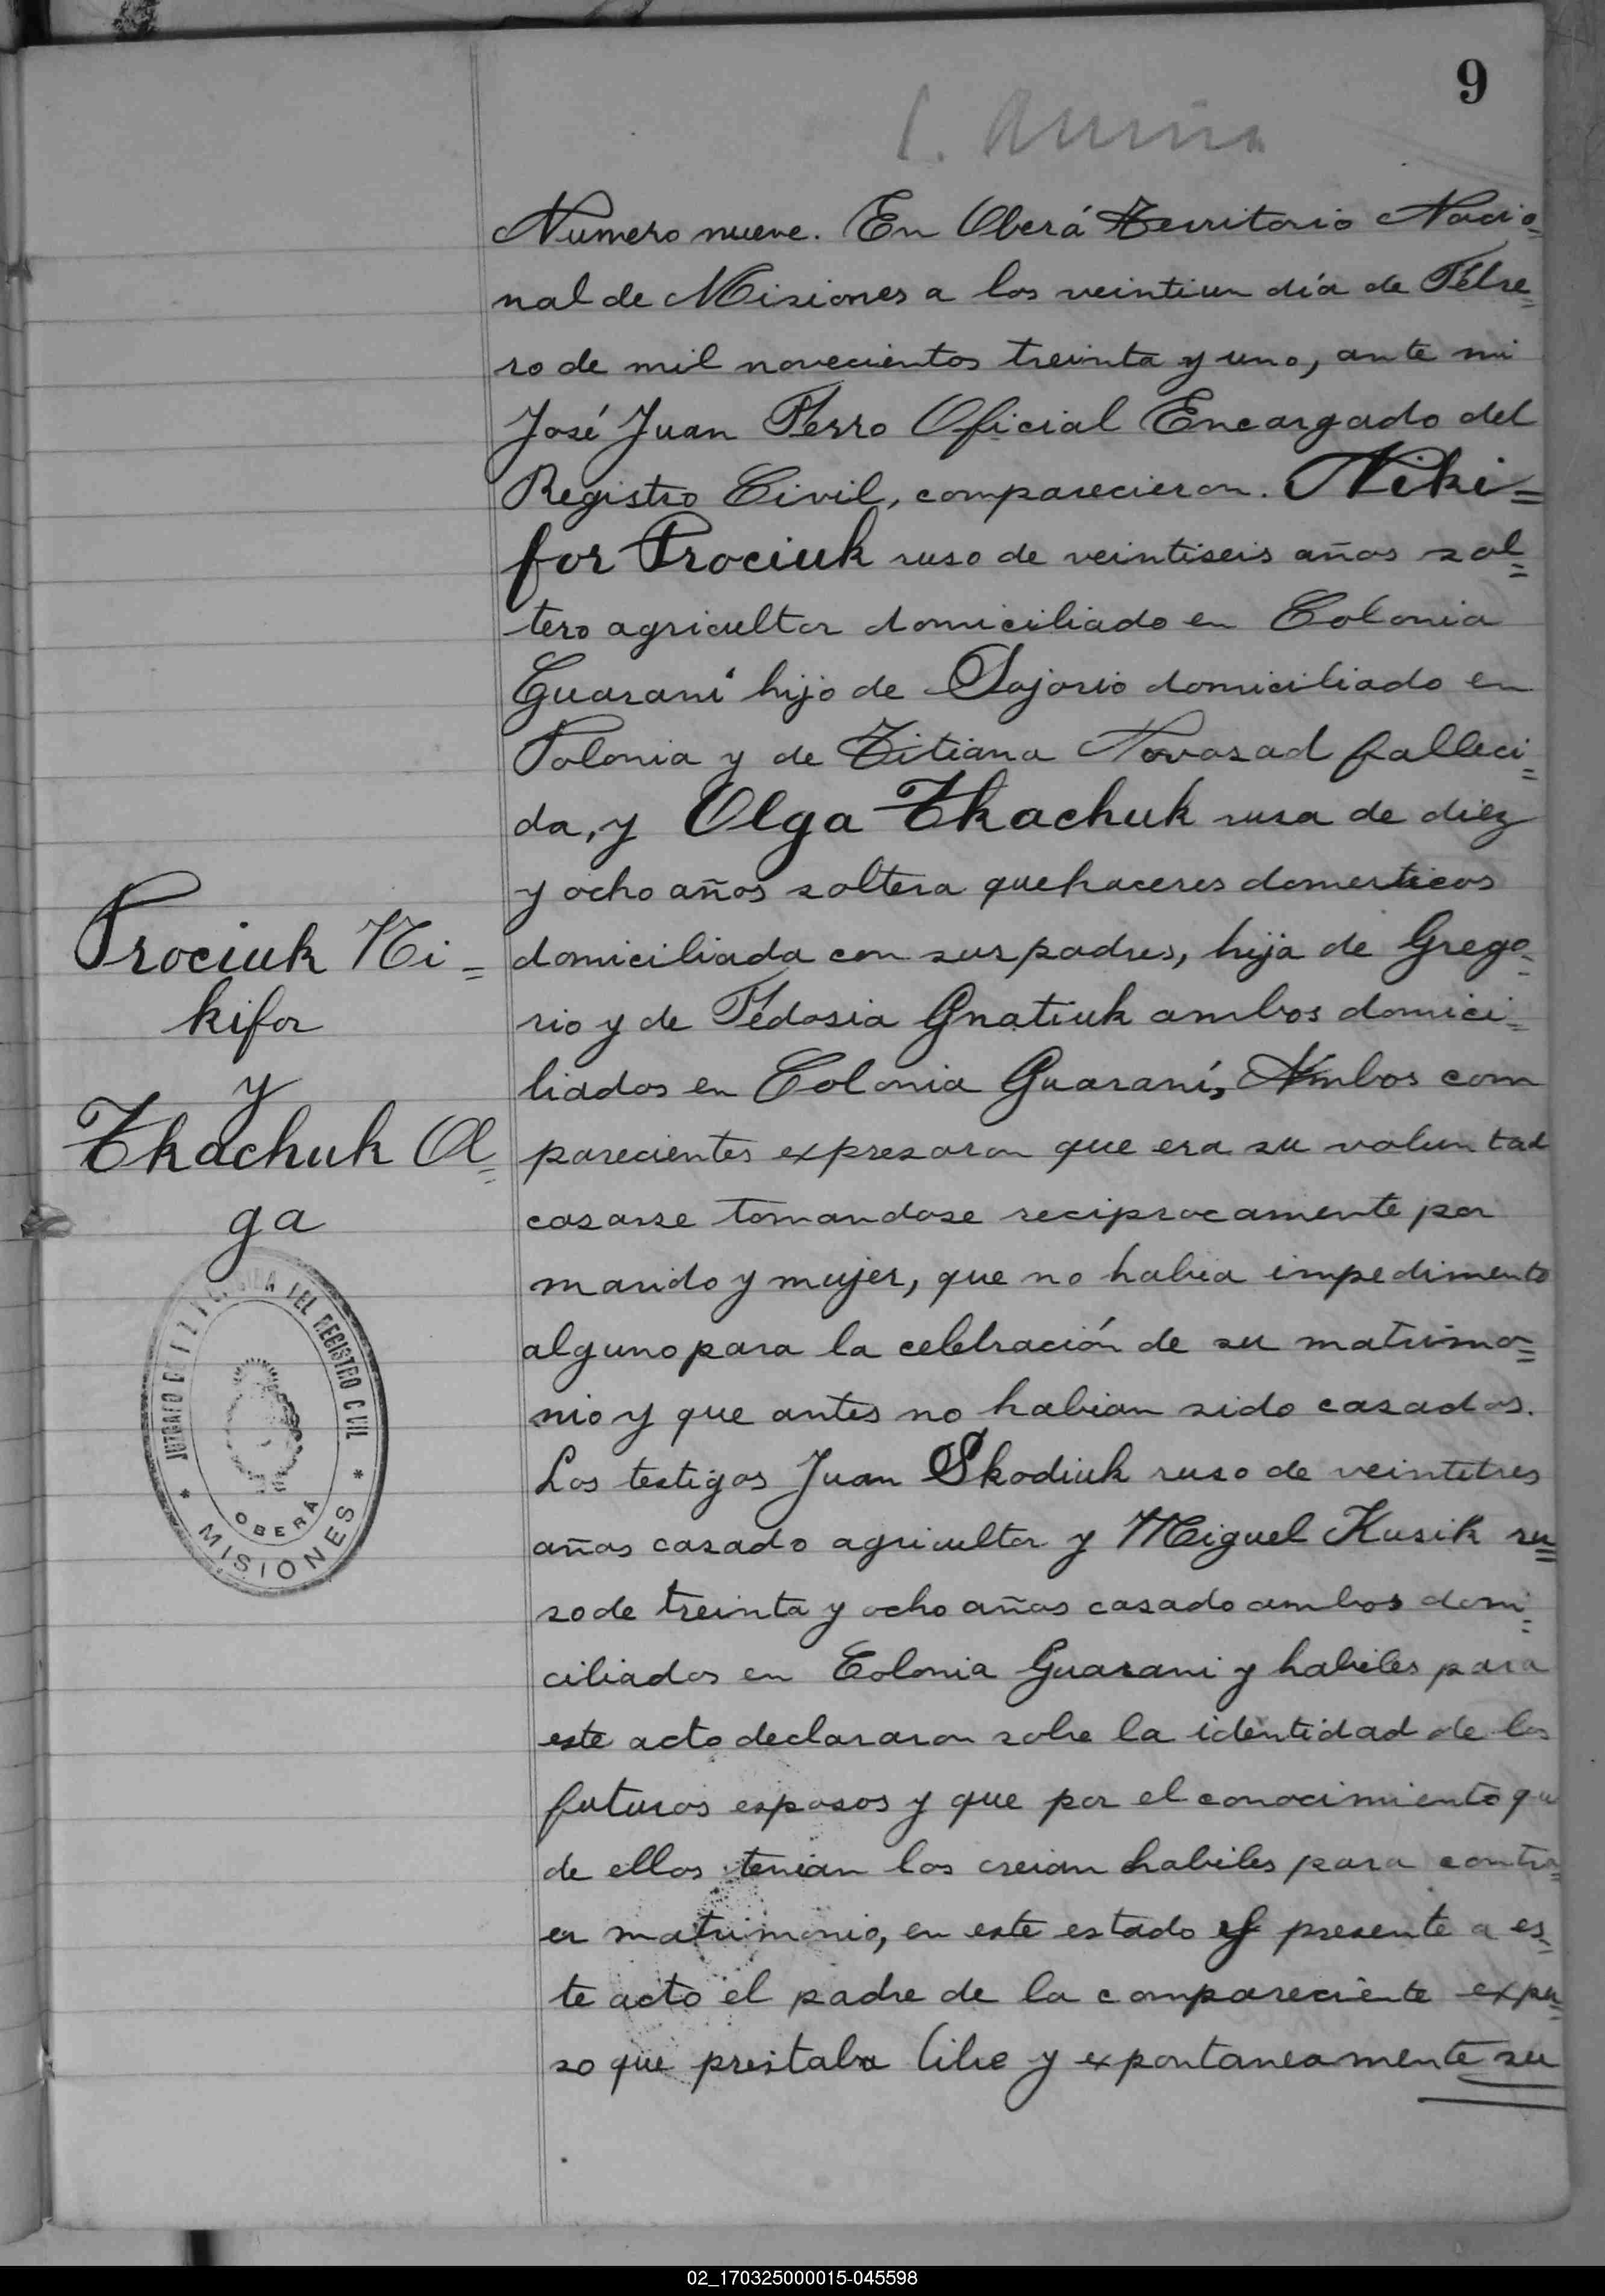 9
Numero nueve. En Oberá Territorio Nacio=
nal de Misiones a los veintiun día de Febre=
ro de mil novecientos treinta y uno, ante mi
José Juan Ferro Oficial Encargado del
Registro Civil, comparecieron. Niki=
for Prociuk ruso de veintiseis años sol=
tero agricultor domiciliado en Colonia
Guaraní hijo de Sajorio domiciliado en
Polonia y de Titiana Novosad falleci=
da, y Olga Tkachuk rusa de diez
y ocho años soltera quehaceres domesticos
domiciliada con sus padres, hija de Grego=
rio y de Fedosia Gnatiuk ambos domici=
liados en Colonia Guaraní, Ambos com
parecientes expresaron que era su voluntad
casarse tomandose reciprocamente por
marido y mujer, que no habia impedimento
alguno para la celebración de su matrimo=
nio y que antes no habian sido casados.
Los testigos Juan Skodiuk ruso de veintitres
años casado agricultor y Miguel Kusik ru=
so de treinta y ocho años casado ambos domi=
ciliados en Colonia Guarani y habiles para
este acto declararon sobre la identidad de los
futuros esposos y que por el conocimiento que
de ellos tenian los creian habiles para contra=
er matrimonio, en este estado y presente a es=
te acto el padre de la compareciente expu=
so que prestaba libre y expontaneamente su
Prociuk Ni=
kifor
y
Tkachuk Ol=
ga
DEL REGISTRO CIVIL
OBERÁ
* MISIONES *
02_170325000015-045598